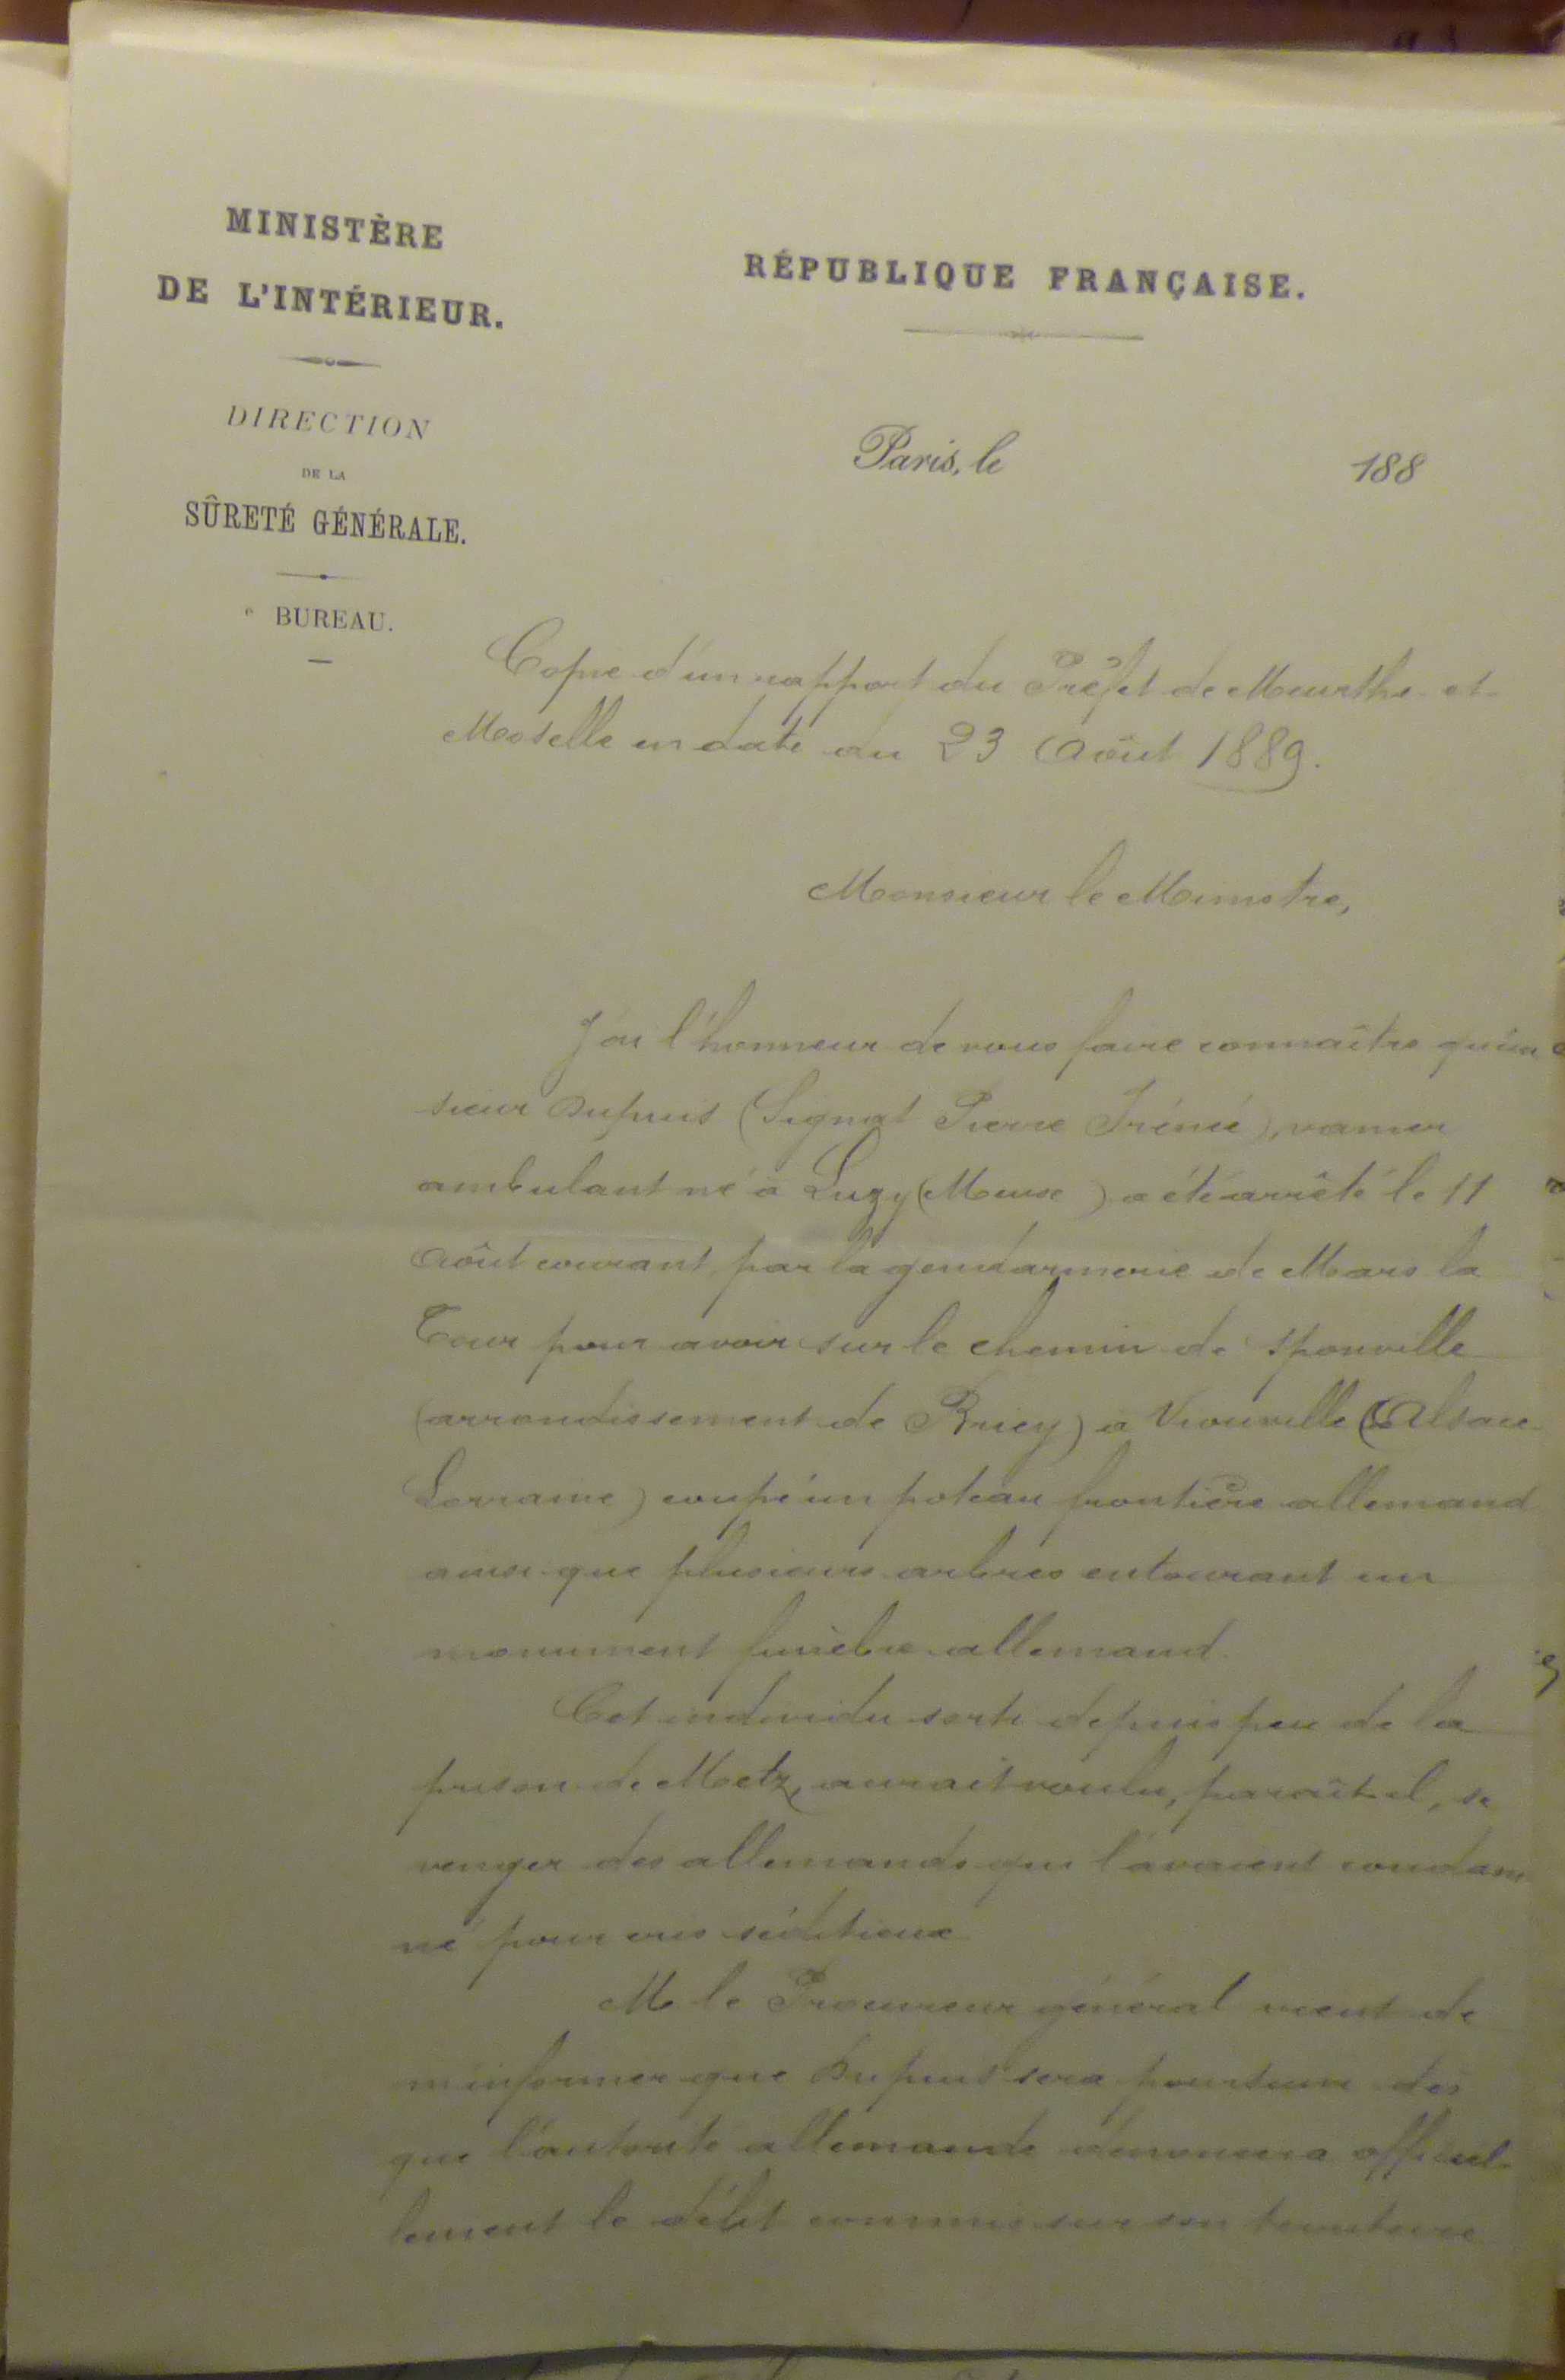 MINISTÈRE
DE L'INTÉRIEUR.
DIRECTION
DE LA
SÛRETÉ GÉNÉRALE.
e BUREAU.
RÉPUBLIQUE FRANÇAISE.
Paris, le 188
Copie d'un rapport du Préfet de Meurthe-et-
Moselle en date du 23 Août 1889.
Monsieur le Ministre,
J'ai l'honneur de vous faire connaître qu'un
sieur Dupuis (Signat Pierre Irénée), vanier
ambulant né à Luzy (Meuse) a été arrêté le 11
Août courant par la gendarmerie de Mars la
Tour pour avoir sur le chemin de Sponville
(arrondissement de Briey) à Vionville (Alsace-
Lorraine) coupé un poteau frontière allemand
ainsi que plusieurs arbres entourant un
monument funèbre allemand.
Cet individu sorti depuis peu de la
prison de Metz, aurait voulu, paraît-il, se
venger des allemands qui l'avaient condam-
né pour cris séditieux.
M. le Procureur général vient de
m'informer que Dupuis sera poursuivi dès
que l'autorité allemande dénoncera officiel-
lement le délit commis sur son territoire